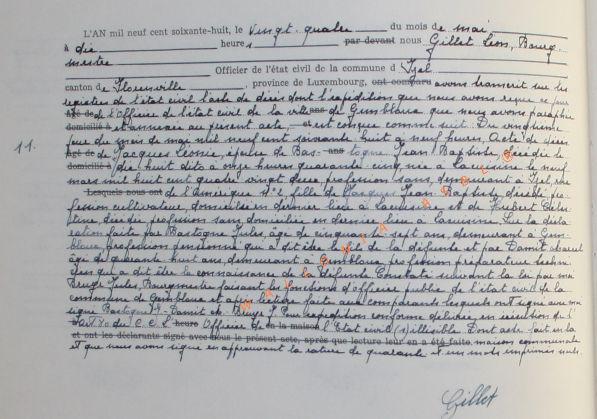 L'AN mil neuf cent soixante-huit, le vingt-quatre du mois de mai
à dix heures par devant nous Gillet Léon, Bourg-
mestre
Officier de l'état civil de la commune d'Izel
canton de Florenville, province de Luxembourg, ont comparu avons transcrit sur les
registres de l'état civil l'acte de décès dont l'expédition que nous avons reçue ce jour
Agé de de l'Officier de l'état civil de la ville ans de Gembloux que nous avons paraphée
domicilié à et annexée au présent acte, et est conçue comme suit: Du vingtième
jour du mois de mai mil neuf cent soixante huit à neuf heures, Acte de décès
11.
Agé de de Jacques Léonie, épouse de Bas- ans togne Jean Baptiste décédée le
domicilié à dix huit dito à onze heures quarante cinq, née à Lacuisine le neuf
mars mil huit cent quatre vingt deux, profession sans, demeurant à Izel, rue
Lesquels nous ont de l'Amérique n° 2 fille de Jacques Jean Baptiste décédé, pro-
fession cultivateur, domicilié en dernier lieu à Lacuisine et de Hubert Céles-
tine décédée profession sans domiciliée en dernier lieu à Lacuisine. Sur la décla-
ration faite par Bastogne Jules, âge de cinquante sept ans, demeurant à Gem-
bloux, profession pensionné qui a dit être le fils de la défunte et par Damit
âge de quarante huit ans, demeurant à Gembloux, profession préparateur techni-
cien qui a dit être la connaissance de la défunte Constaté suivant la loi par nous
Bruye Jules, Bourgmestre faisant les fonctions d'officier public de l'état civil de la
commune de Gembloux et après lecture faite aux comparants lesquels ont signé avec nous
signé Bastogne J. Damit Bruye J. Pour expédition conforme délivrée en exécution de l'
art. 80 du C. C. L'heure Officier de en la maison l'Etat civil (s) illisible. Dont acte fait en la
et ont les déclarants signé avec nous le présent acte, après que lecture leur en a été faite. maison communale
et que nous avons signé en approuvant la rature de quarante et un mots imprimés nuls.
Gillet